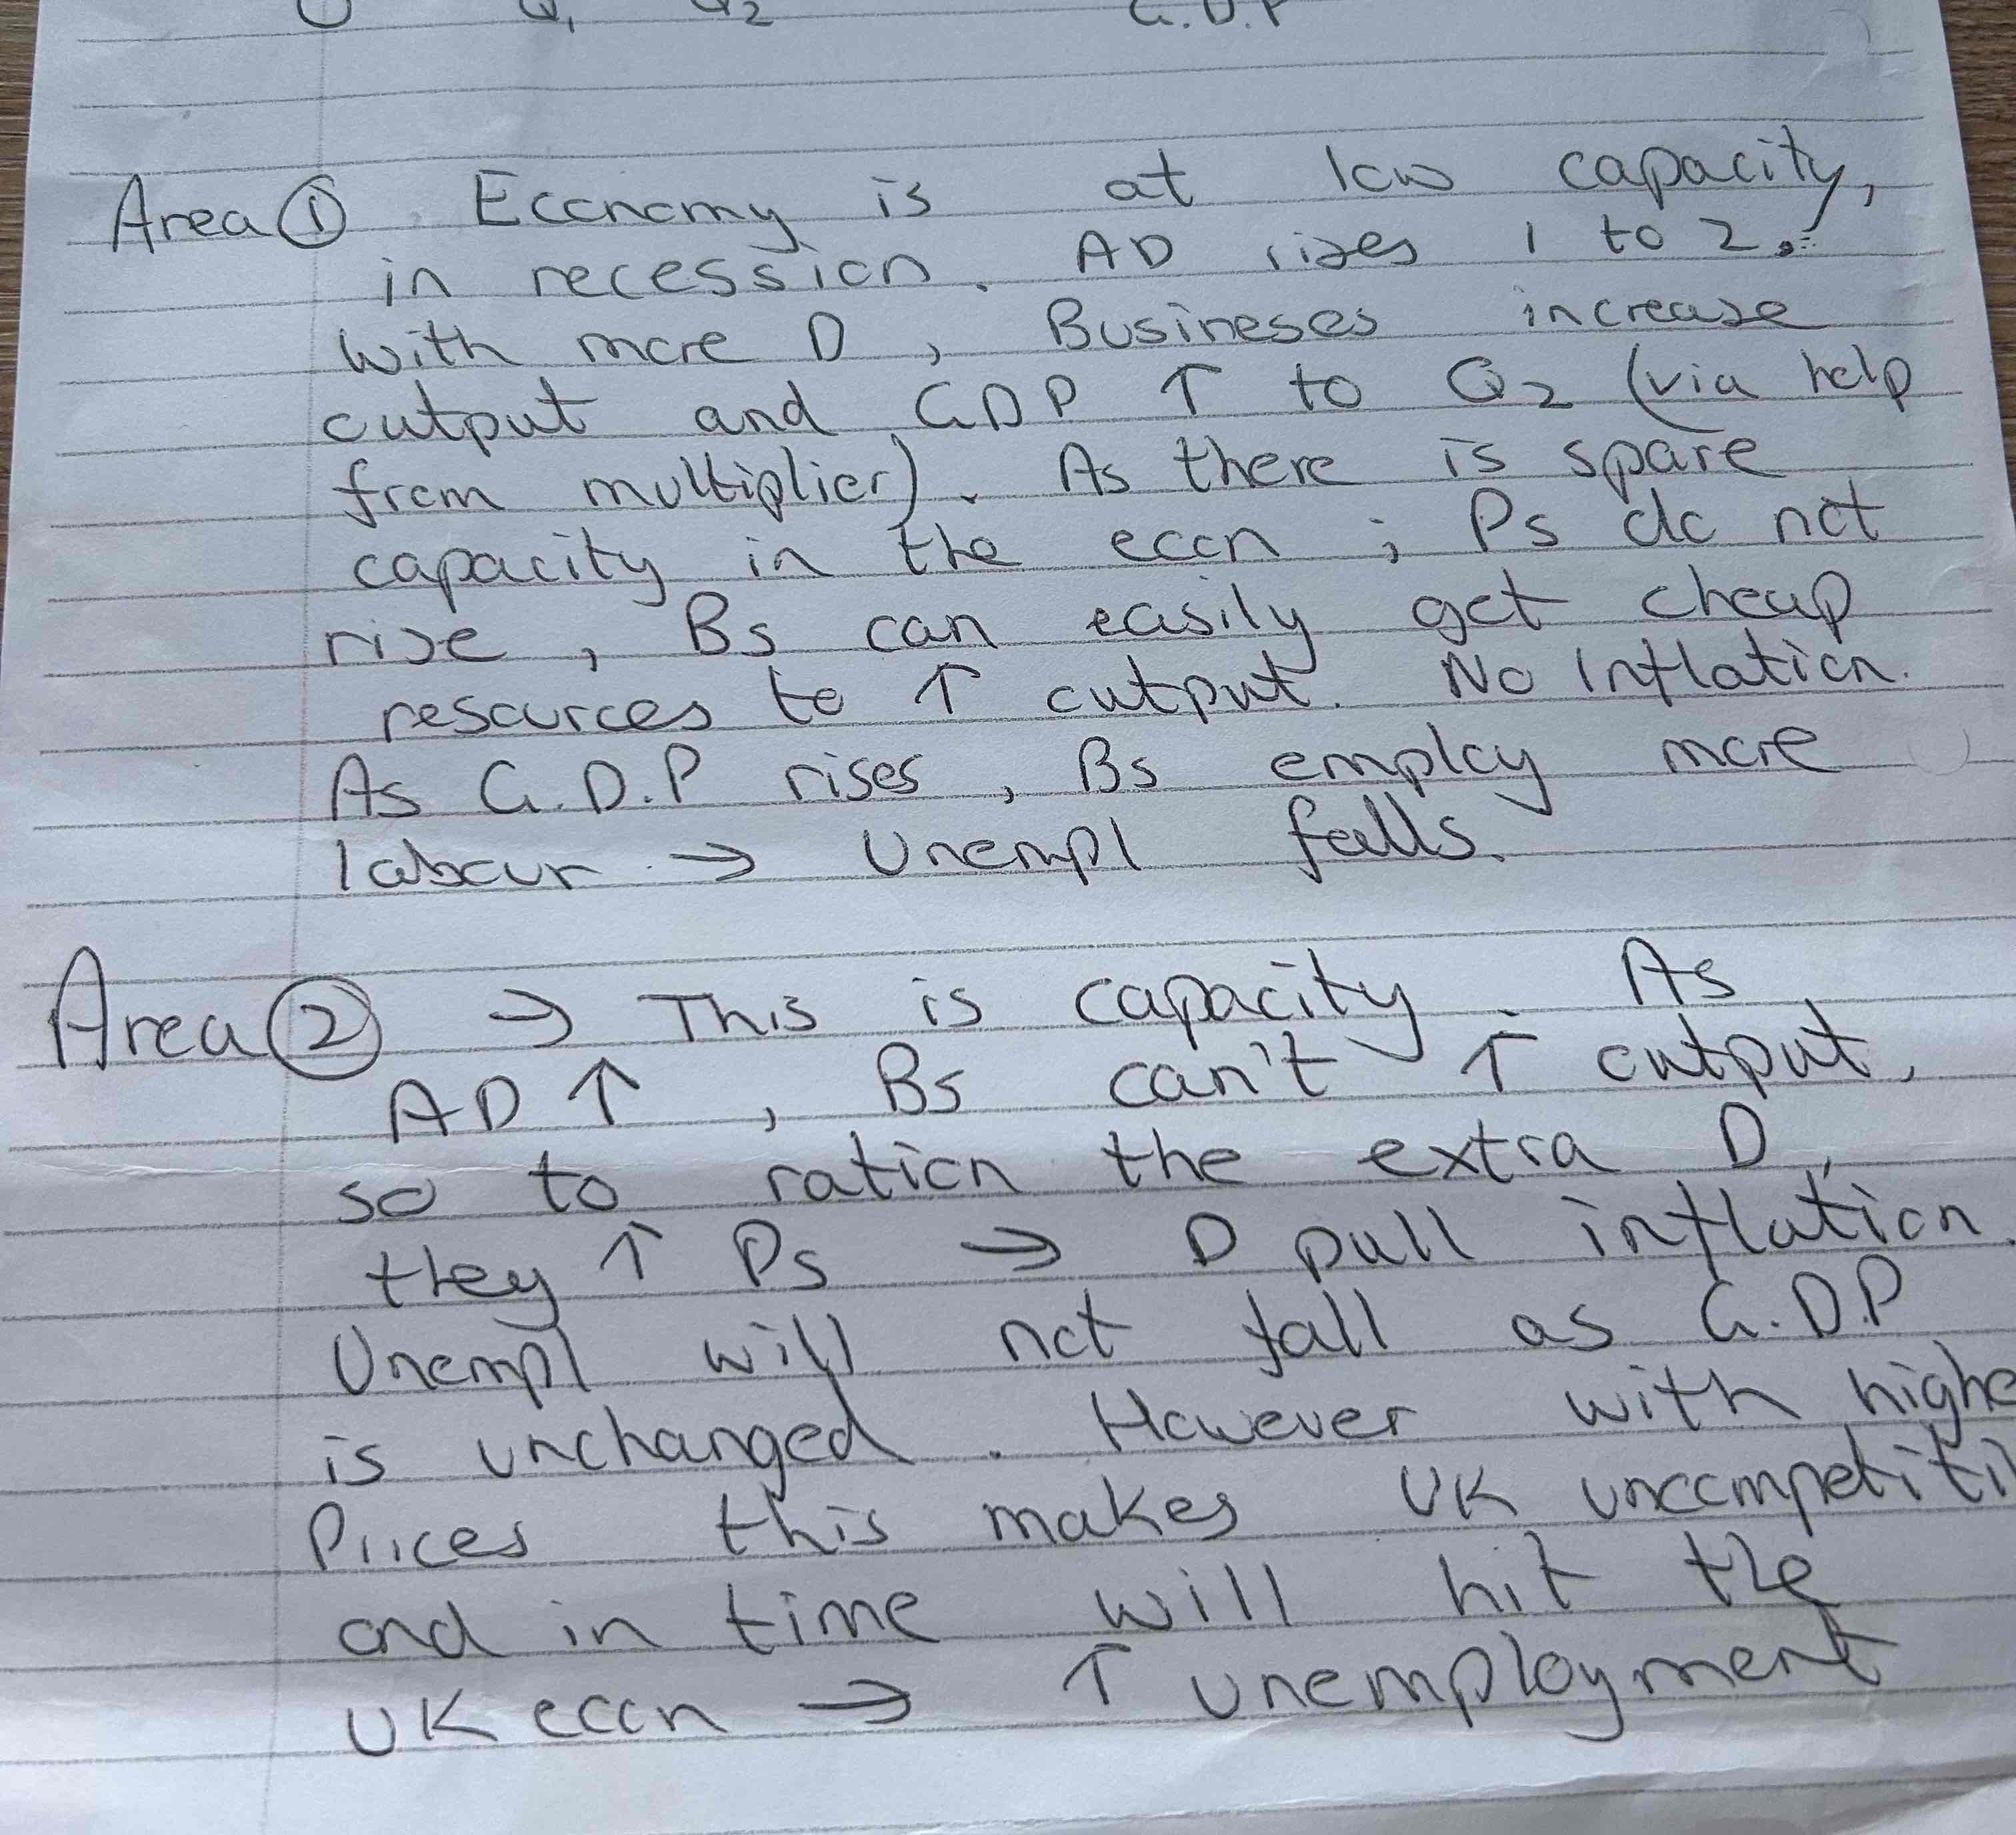 O Q1 Q2 G.D.P
Area ① Economy is at low capacity,
in recession. AD rises 1 to 2.
With more D, Busineses increase
output and GDP ↑ to Q2 (via help
from multiplier). As there is spare
capacity in the econ; Ps do not
rise, Bs can easily get cheap
resources to ↑ output. No Inflation.
As G.D.P rises, Bs employ more
labour → Unempl falls.
Area ② → This is capacity. As
AD ↑, Bs can't ↑ output,
so to ration the extra D,
they ↑ Ps → D pull inflation.
Unempl will not fall as G.D.P
is unchanged. However with highe
Prices this makes UK uncompetiti
and in time will hit the
UK econ → ↑ unemployment